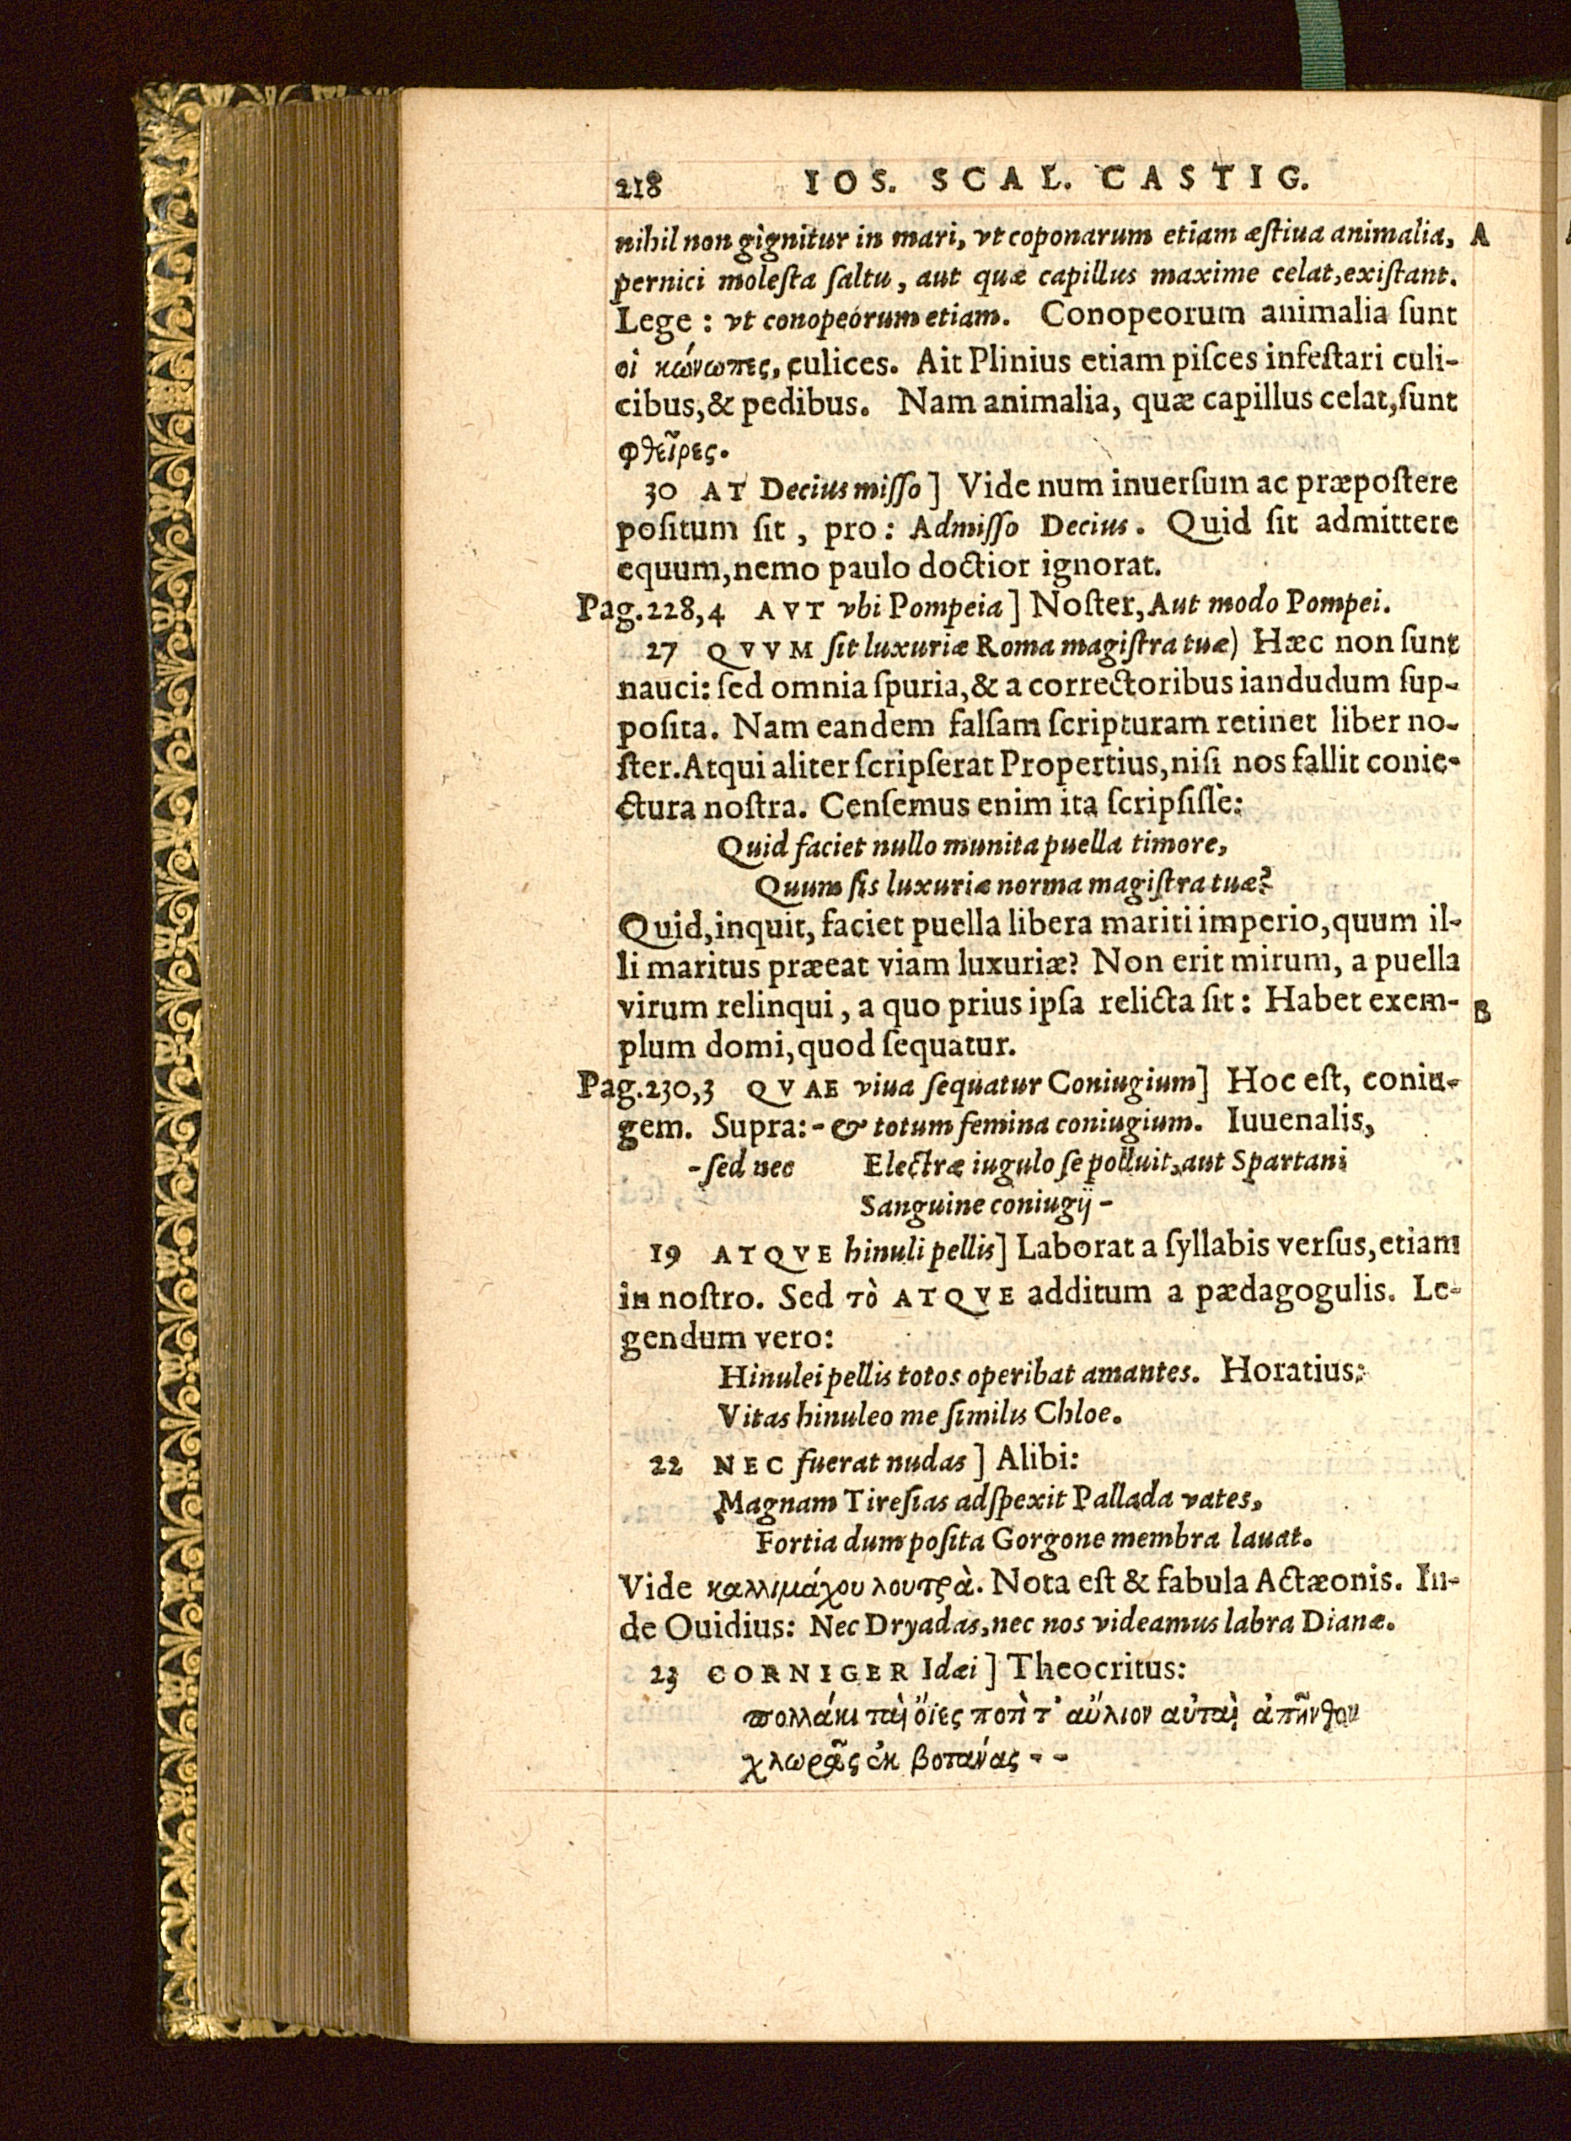 218 IOS. SCAL. CASTIG.
nihil non gignitur in mari, vt coponarum etiam æſtiua animalia, A
pernici moleſta ſaltu, aut quæ capillus maxime celat, exiſtant.
Lege: vt conopeorum etiam. Conopeorum animalia ſunt
οἱ κώνωπες, culices. Ait Plinius etiam piſces infeſtari culi-
cibus, & pedibus. Nam animalia, quæ capillus celat, ſunt
φθεῖρες.
30 AT Decius miſſo] Vide num inuerſum ac præpoſtere
poſitum ſit, pro: Admiſſo Decius. Quid ſit admittere
equum, nemo paulo doctior ignorat.
Pag. 228, 4 AVT vbi Pompeia] Noſter, Aut modo Pompei.
27 QVVM ſit luxuriæ Roma magiſtra tuæ) Hæc non ſunt
nauci: ſed omnia ſpuria, & a correctoribus iandudum ſup-
poſita. Nam eandem falſam ſcripturam retinet liber no-
ſter. Atqui aliter ſcripſerat Propertius, niſi nos fallit conie-
ctura noſtra. Cenſemus enim ita ſcripſiſſe:
Quid faciet nullo munita puella timore,
Quum ſis luxuriæ norma magiſtra tuæ?
Quid, inquit, faciet puella libera mariti imperio, quum il-
li maritus præeat viam luxuriæ? Non erit mirum, a puella
virum relinqui, a quo prius ipſa relicta ſit: Habet exem- B
plum domi, quod ſequatur.
Pag. 230, 3 QVAE viua ſequatur Coniugium] Hoc eſt, coniu-
gem. Supra: - & totum femina coniugium. Iuuenalis,
- ſed nec Electræ iugulo ſe polluit, aut Spartani
Sanguine coniugij -
19 ATQVE hinuli pellis] Laborat a ſyllabis verſus, etiam
in noſtro. Sed τὸ ATQVE additum a pædagogulis. Le-
gendum vero:
Hinulei pellis totos operibat amantes. Horatius:
Vitas hinuleo me ſimilis Chloe.
22 NEC fuerat nudas] Alibi:
Magnam Tireſias adſpexit Pallada vates,
Fortia dum poſita Gorgone membra lauat.
Vide καλλιμάχου λουτρὰ. Nota eſt & fabula Actæonis. In-
de Ouidius: Nec Dryadas, nec nos videamus labra Dianæ.
23 CORNIGER Idæi] Theocritus:
πολλάκι ταὶ ὄϊες ποτὶ τ' αὔλιον αὐταὶ ἀπῆνθον
χλωρᾶς ἐκ βοτάνας - -